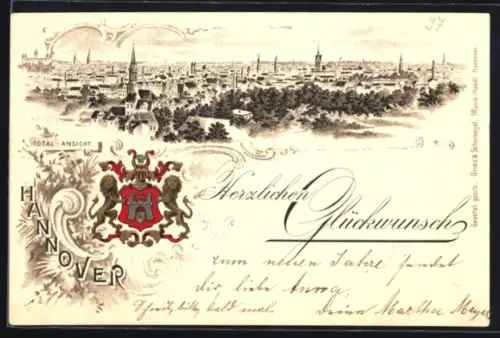 97
TOTAL-ANSICHT.
HANNOVER
Herzlichen
Glückwunsch
zum neuen Jahre sendet
dir liebe Anna,
Schreib bitte bald mal. deine Martha Meyer
Gesetzl. gesch. Grves & Schornagel, Musik-Handl. Hannover